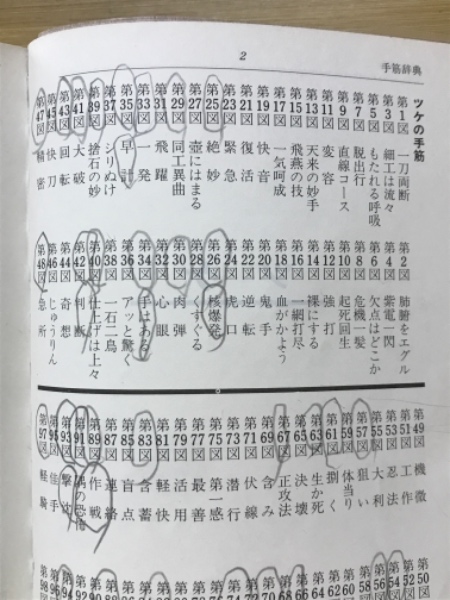 2
手筋辞典
ツケの手筋
第1図 一刀両断
第3図 細工は流々
第5図 もたれる呼吸
第7図 脱出行
第9図 直線コース
第11図 変容
第13図 天来の妙手
第15図 飛燕の技
第17図 一気呵成
第19図 快音
第21図 復活
第23図 緊急
第25図 絶妙
第27図 壺にはまる
第29図 同工異曲
第31図 飛躍
第33図 一発
第35図 早計
第37図 シリぬけ
第39図 捨石の妙
第41図 大破
第43図 回転
第45図 快刀
第47図 精密
第2図 肺腑をエグル
第4図 紫電一閃
第6図 欠点はどこか
第8図 危機一髪
第10図 起死回生
第12図 強打
第14図 裸にする
第16図 一網打尽
第18図 血がかよう
第20図 鬼手
第22図 逆転
第24図 虎口
第26図 核爆発
第28図 くすぐる
第30図 肉弾
第32図 心眼
第34図 手はある
第36図 アッと驚く
第38図 一石二鳥
第40図 仕上げは上々
第42図 判断
第44図 奇想
第46図 じゅうりん
第48図 急所
第49図 機微
第51図 工作
第53図 忍法
第55図 大利
第57図 狙い
第59図 体当り
第61図 捌く
第63図 生か死
第65図 決壊
第67図 正攻法
第69図 含み
第71図 伏線
第73図 潜行
第75図 第一感
第77図 最善
第79図 活用
第81図 軽快
第83図 含蓄
第85図 盲点
第87図 連絡
第89図 作戦
第91図 隅の恐怖
第93図 撃沈
第95図 佳手
第97図 軽騎
第50図
第52図
第54図
第56図
第58図
第60図
第62図
第64図
第66
第68
第70
第72
第74
第76
第78
第80
第82
第84
第86
第88
第90
第92
第94
第96
第98